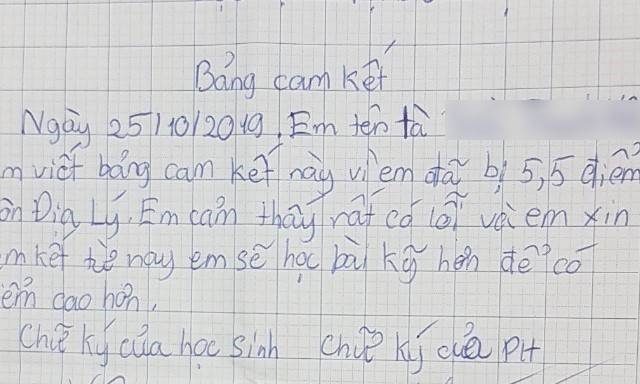 Bảng cam kết
Ngày 25/10/2019. Em tên là
m viết bảng cam kết này vì em đã bị 5,5 điểm
ôn Địa Lý. Em cảm thấy rất có lỗi và em xin
m kết từ nay em sẽ học bài kỹ hơn để có
ểm cao hơn.
Chữ ký của học sinh Chữ ký của PH